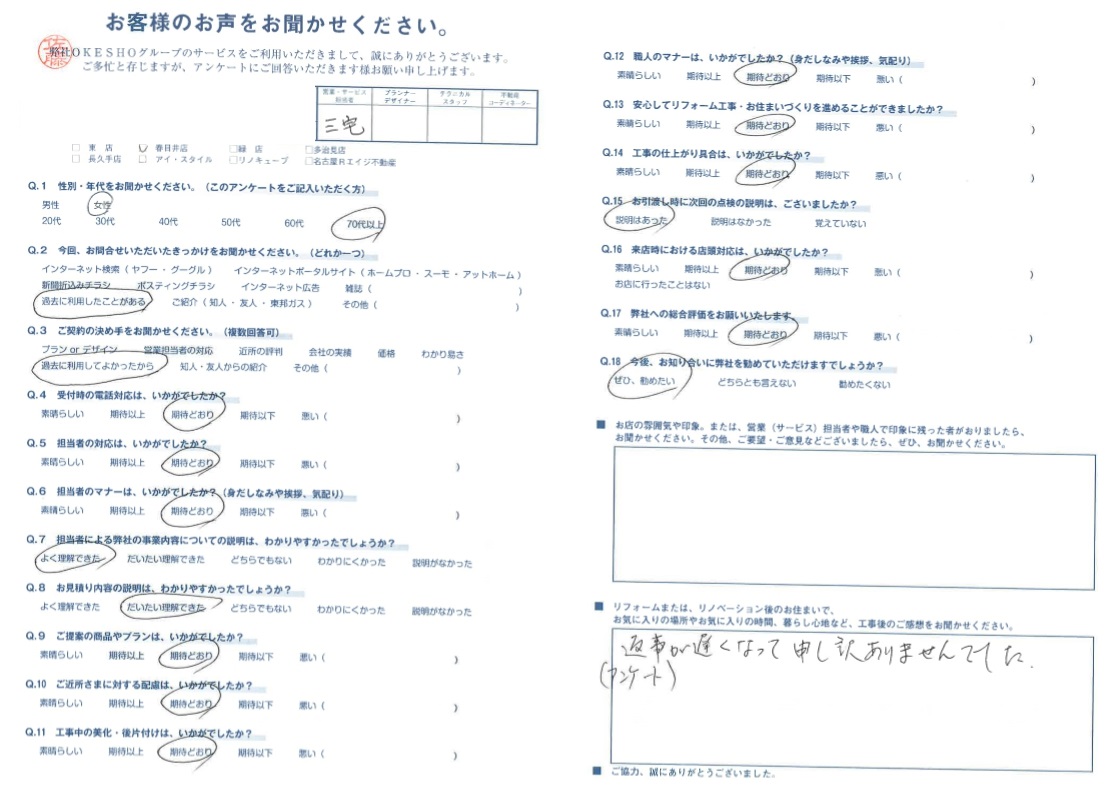 お客様のお声をお聞かせください。
佐藤
弊社OKESHOグループのサービスをご利用いただきまして、誠にありがとうございます。
ご多忙と存じますが、アンケートにご回答いただきます様お願い申し上げます。
営業・サービス担当者 プランナーデザイナー テクニカルスタッフ 不動産コーディネーター
三宅
□ 東 店 □ 春日井店 □緑 店 □多治見店
□ 長久手店 □ アイ・スタイル □リノキューブ □名古屋Rエイジ不動産
Q.1 性別・年代をお聞かせください。（このアンケートをご記入いただく方）
男性 女性
20代 30代 40代 50代 60代 70代以上
Q.2 今回、お問合せいただいたきっかけをお聞かせください。（どれか一つ）
インターネット検索（ ヤフー ・ グーグル ） インターネットポータルサイト（ ホームプロ ・ スーモ ・ アットホーム ）
新聞折込みチラシ ポスティングチラシ インターネット広告 雑誌（ ）
過去に利用したことがある ご紹介（ 知人 ・ 友人 ・ 東邦ガス ） その他（ ）
Q.3 ご契約の決め手をお聞かせください。（複数回答可）
プラン or デザイン 営業担当者の対応 近所の評判 会社の実績 価格 わかり易さ
過去に利用してよかったから 知人・友人からの紹介 その他（ ）
Q.4 受付時の電話対応は、いかがでしたか？
素晴らしい 期待以上 期待どおり 期待以下 悪い（ ）
Q.5 担当者の対応は、いかがでしたか？
素晴らしい 期待以上 期待どおり 期待以下 悪い（ ）
Q.6 担当者のマナーは、いかがでしたか？（身だしなみや挨拶、気配り）
素晴らしい 期待以上 期待どおり 期待以下 悪い（ ）
Q.7 担当者による弊社の事業内容についての説明は、わかりやすかったでしょうか？
よく理解できた だいたい理解できた どちらでもない わかりにくかった 説明がなかった
Q.8 お見積り内容の説明は、わかりやすかったでしょうか？
よく理解できた だいたい理解できた どちらでもない わかりにくかった 説明がなかった
Q.9 ご提案の商品やプランは、いかがでしたか？
素晴らしい 期待以上 期待どおり 期待以下 悪い（ ）
Q.10 ご近所さまに対する配慮は、いかがでしたか？
素晴らしい 期待以上 期待どおり 期待以下 悪い（ ）
Q.11 工事中の美化・後片付けは、いかがでしたか？
素晴らしい 期待以上 期待どおり 期待以下 悪い（ ）
Q.12 職人のマナーは、いかがでしたか？（身だしなみや挨拶、気配り）
素晴らしい 期待以上 期待どおり 期待以下 悪い（ ）
Q.13 安心してリフォーム工事・お住まいづくりを進めることができましたか？
素晴らしい 期待以上 期待どおり 期待以下 悪い（ ）
Q.14 工事の仕上がり具合は、いかがでしたか？
素晴らしい 期待以上 期待どおり 期待以下 悪い（ ）
Q.15 お引渡し時に次回の点検の説明は、ございましたか？
説明はあった 説明はなかった 覚えていない
Q.16 来店時における店頭対応は、いかがでしたか？
素晴らしい 期待以上 期待どおり 期待以下 悪い（ ）
お店に行ったことはない
Q.17 弊社への総合評価をお願いいたします。
素晴らしい 期待以上 期待どおり 期待以下 悪い（ ）
Q.18 今後、お知り合いに弊社を勧めていただけますでしょうか？
ぜひ、勧めたい どちらとも言えない 勧めたくない
■ お店の雰囲気や印象。または、営業（サービス）担当者や職人で印象に残った者がおりましたら、
お聞かせください。その他、ご要望・ご意見などございましたら、ぜひ、お聞かせください。
■ リフォームまたは、リノベーション後のお住まいで、
お気に入りの場所やお気に入りの時間、暮らし心地など、工事後のご感想をお聞かせください。
返事が遅くなって申し訳ありませんでした.
(アンケート)
■ ご協力、誠にありがとうございました。